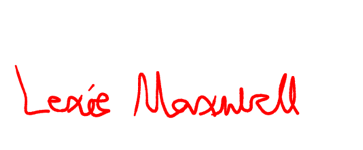 Lexie Maxwell